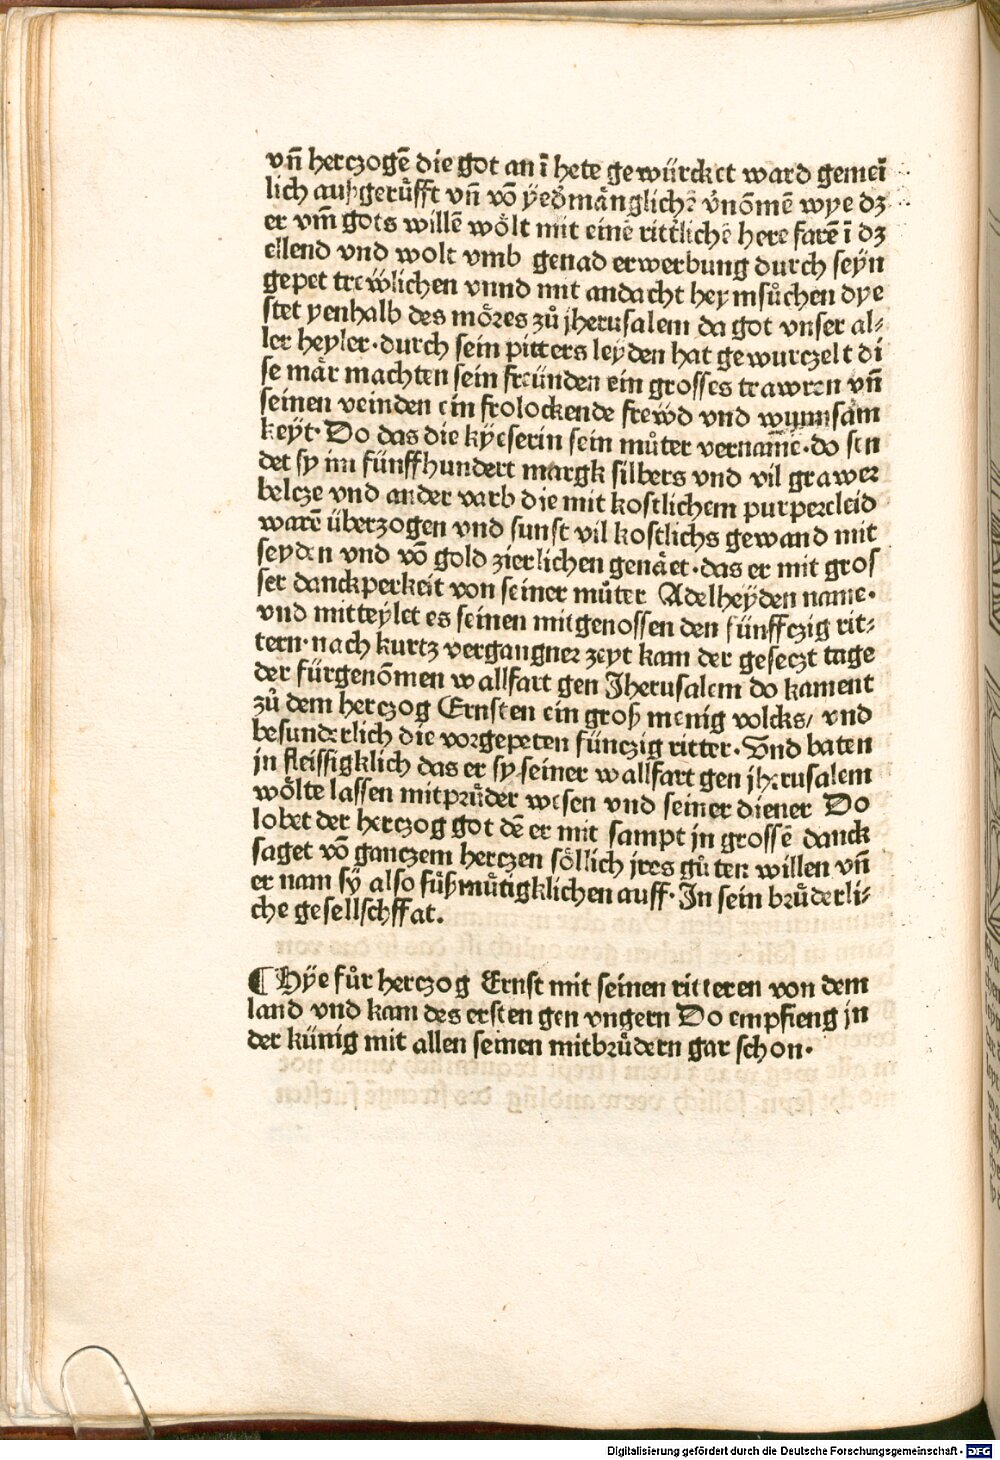 vñ herczogē die got an ī hete gewürcket ward gemeī
lich außgerůfft vñ võ ÿedmänglichē v̉nõmē wye dz
er vm̃ gots willē wölt mit einē rittlichē here farē ī dz
ellend vnd wolt vmb genad erwerbung durch seyn
gepet trewlichen vnnd mit andacht heymsůchen dye
stet yenhalb des möres zů jherusalem da got vnser al⸗
ler heyler·durch sein pitters leyden hat gewurczelt di
se mär machten sein freünden ein grosses trawren vñ
seinen veinden ein frolockende frewd vnd wunsam
keyt·Do das die kÿeserin sein můter vername·do sen
det sy im fünffhundert margk silbers vnd vil grawer
belcze vnd ander varb die mit kostlichem purpercleid
warē überzogen vnd sunst vil kostlichs gewand mit
seyden vnd võ gold zierlichen genäet·das er mit gros
ser danckperkeit von seiner můter Adelheyden name·
vnd mitteylet es seinen mitgenossen den fünffczig rit⸗
tern·nach kurtz vergangner zeyt kam der geseczt tage
der fürgenõmen wallfart gen Jherusalem do kament
zů dem herczog Ernsten ein groß menig volcks/ vnd
besunderlich die vorgepeten fünczig ritter·Vnd baten
jn fleissigklich das er sy seiner wallfart gen jherusalem
wölte lassen mitprůder wesen vnd seiner diener Do
lobet der herczog got dē er mit sampt jn grossē danck
saget võ ganczem herczen söllich jres gůten willen vñ
er nam sÿ also fůßmůtigklichen auff·In sein brůderli⸗
che gesellschffat.
¶Hÿe fůr herczog Ernst mit seinen ritteren von dem
land vnd kam des ersten gen vngern Do empfieng jn
der künig mit allen seinen mitbrůdern gar schon·
Digitalisierung gefördert durch die Deutsche Forschungsgemeinschaft - DFG